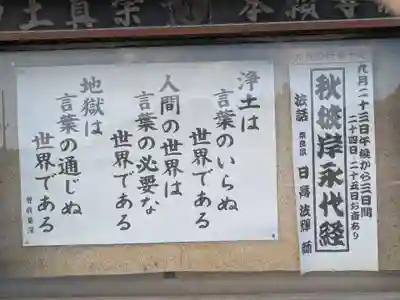 浄土は
言葉のいらぬ
世界である
人間の世界は
言葉の必要な
世界である
地獄は
言葉の通じぬ
世界である
曽我量深
九月二十三日午後から三日間
二十四日、二十五日お斎あり
秋彼岸永代経
法話